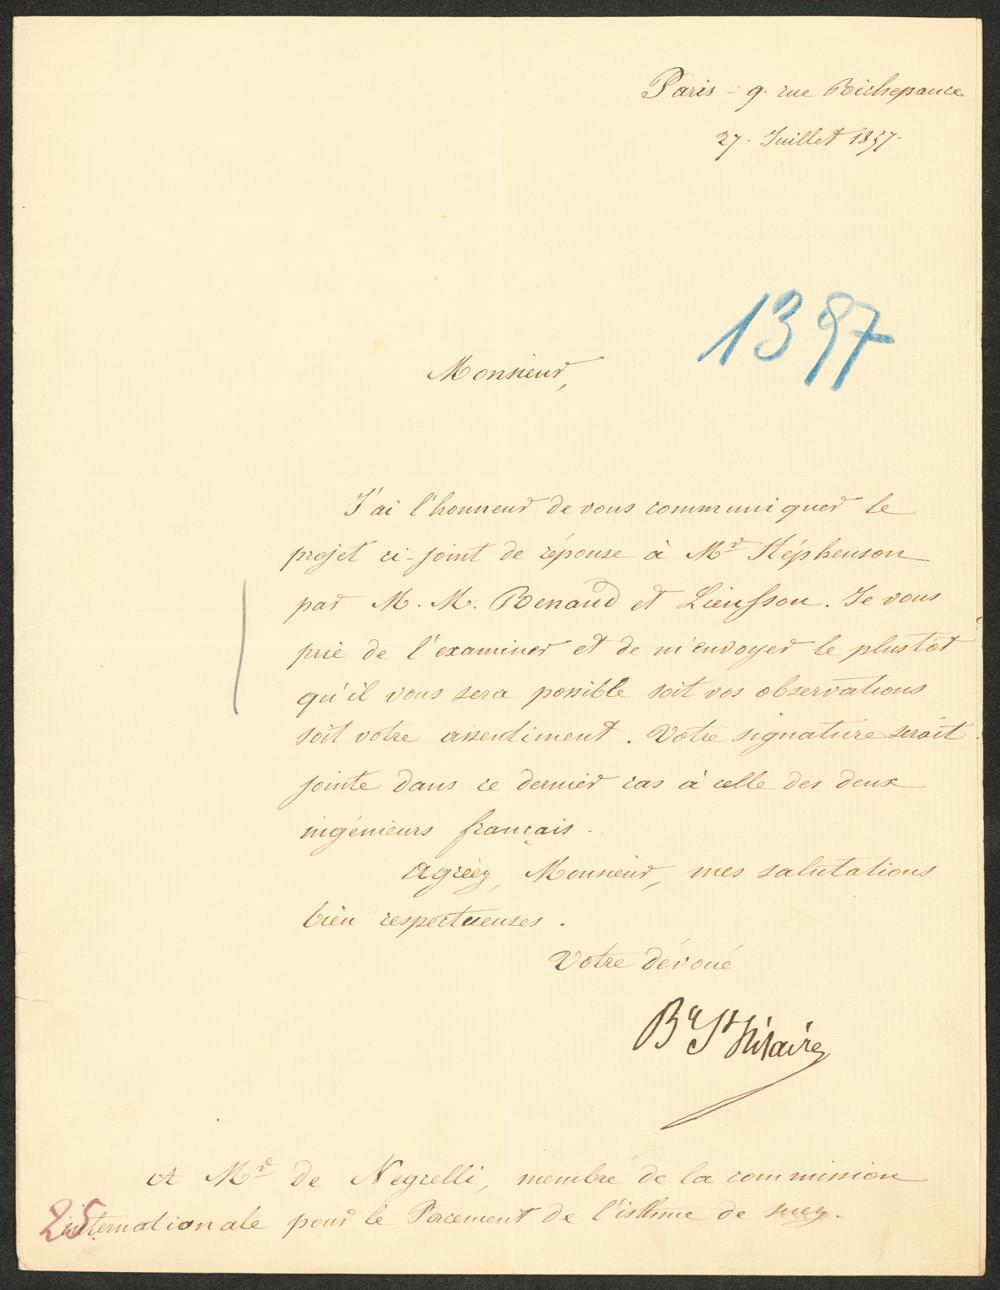 Paris - 9. rue Richepance
27. Juillet 1857.
1397
Monsieur,
J'ai l'honneur de vous communiquer le
projet ci-joint de réponse à Mr Stéphenson
par M. M. Renaud et Lieussou. Je vous
prie de l'examiner et de m'envoyer le plustôt
qu'il vous sera possible soit vos observations
soit votre assentiment. Votre signature serait
jointe dans ce dernier cas à celle des deux
ingénieurs français.
Agréez, Monsieur, mes salutations
bien respectueuses.
Votre dévoué
By St Hilaire
A Mr de Negrelli, membre de la commission
internationale pour le Percement de l'isthme de Suez.
25